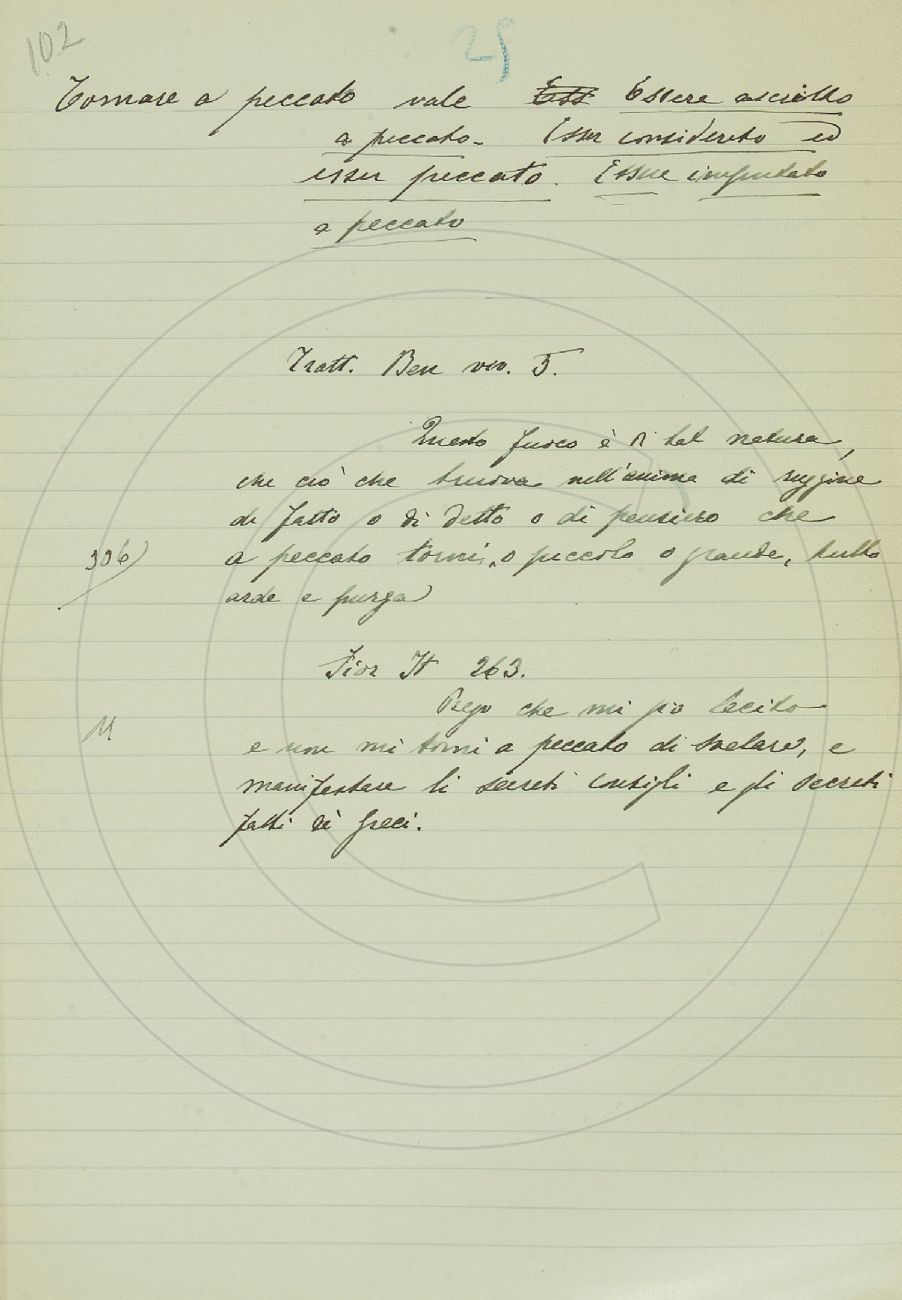 102
25
Tornare a peccato vale Ess Essere ascritto
a peccato. Esser considerato ed
esser peccato. Essere imputato
a peccato
Tratt. Ben viv. 5.
Questo fuoco è di tal natura,
che ciò che truova nell'anima di ruggine
di fatto o di detto o di pensiero che
306)
a peccato torni, o piccolo o grande, tutto
arde e purga
Fior It 263.
Prego che mi sia lecito
M
e non mi torni a peccato di svelare, e
manifestare li secreti consigli e gli secreti
fatti de' Greci.